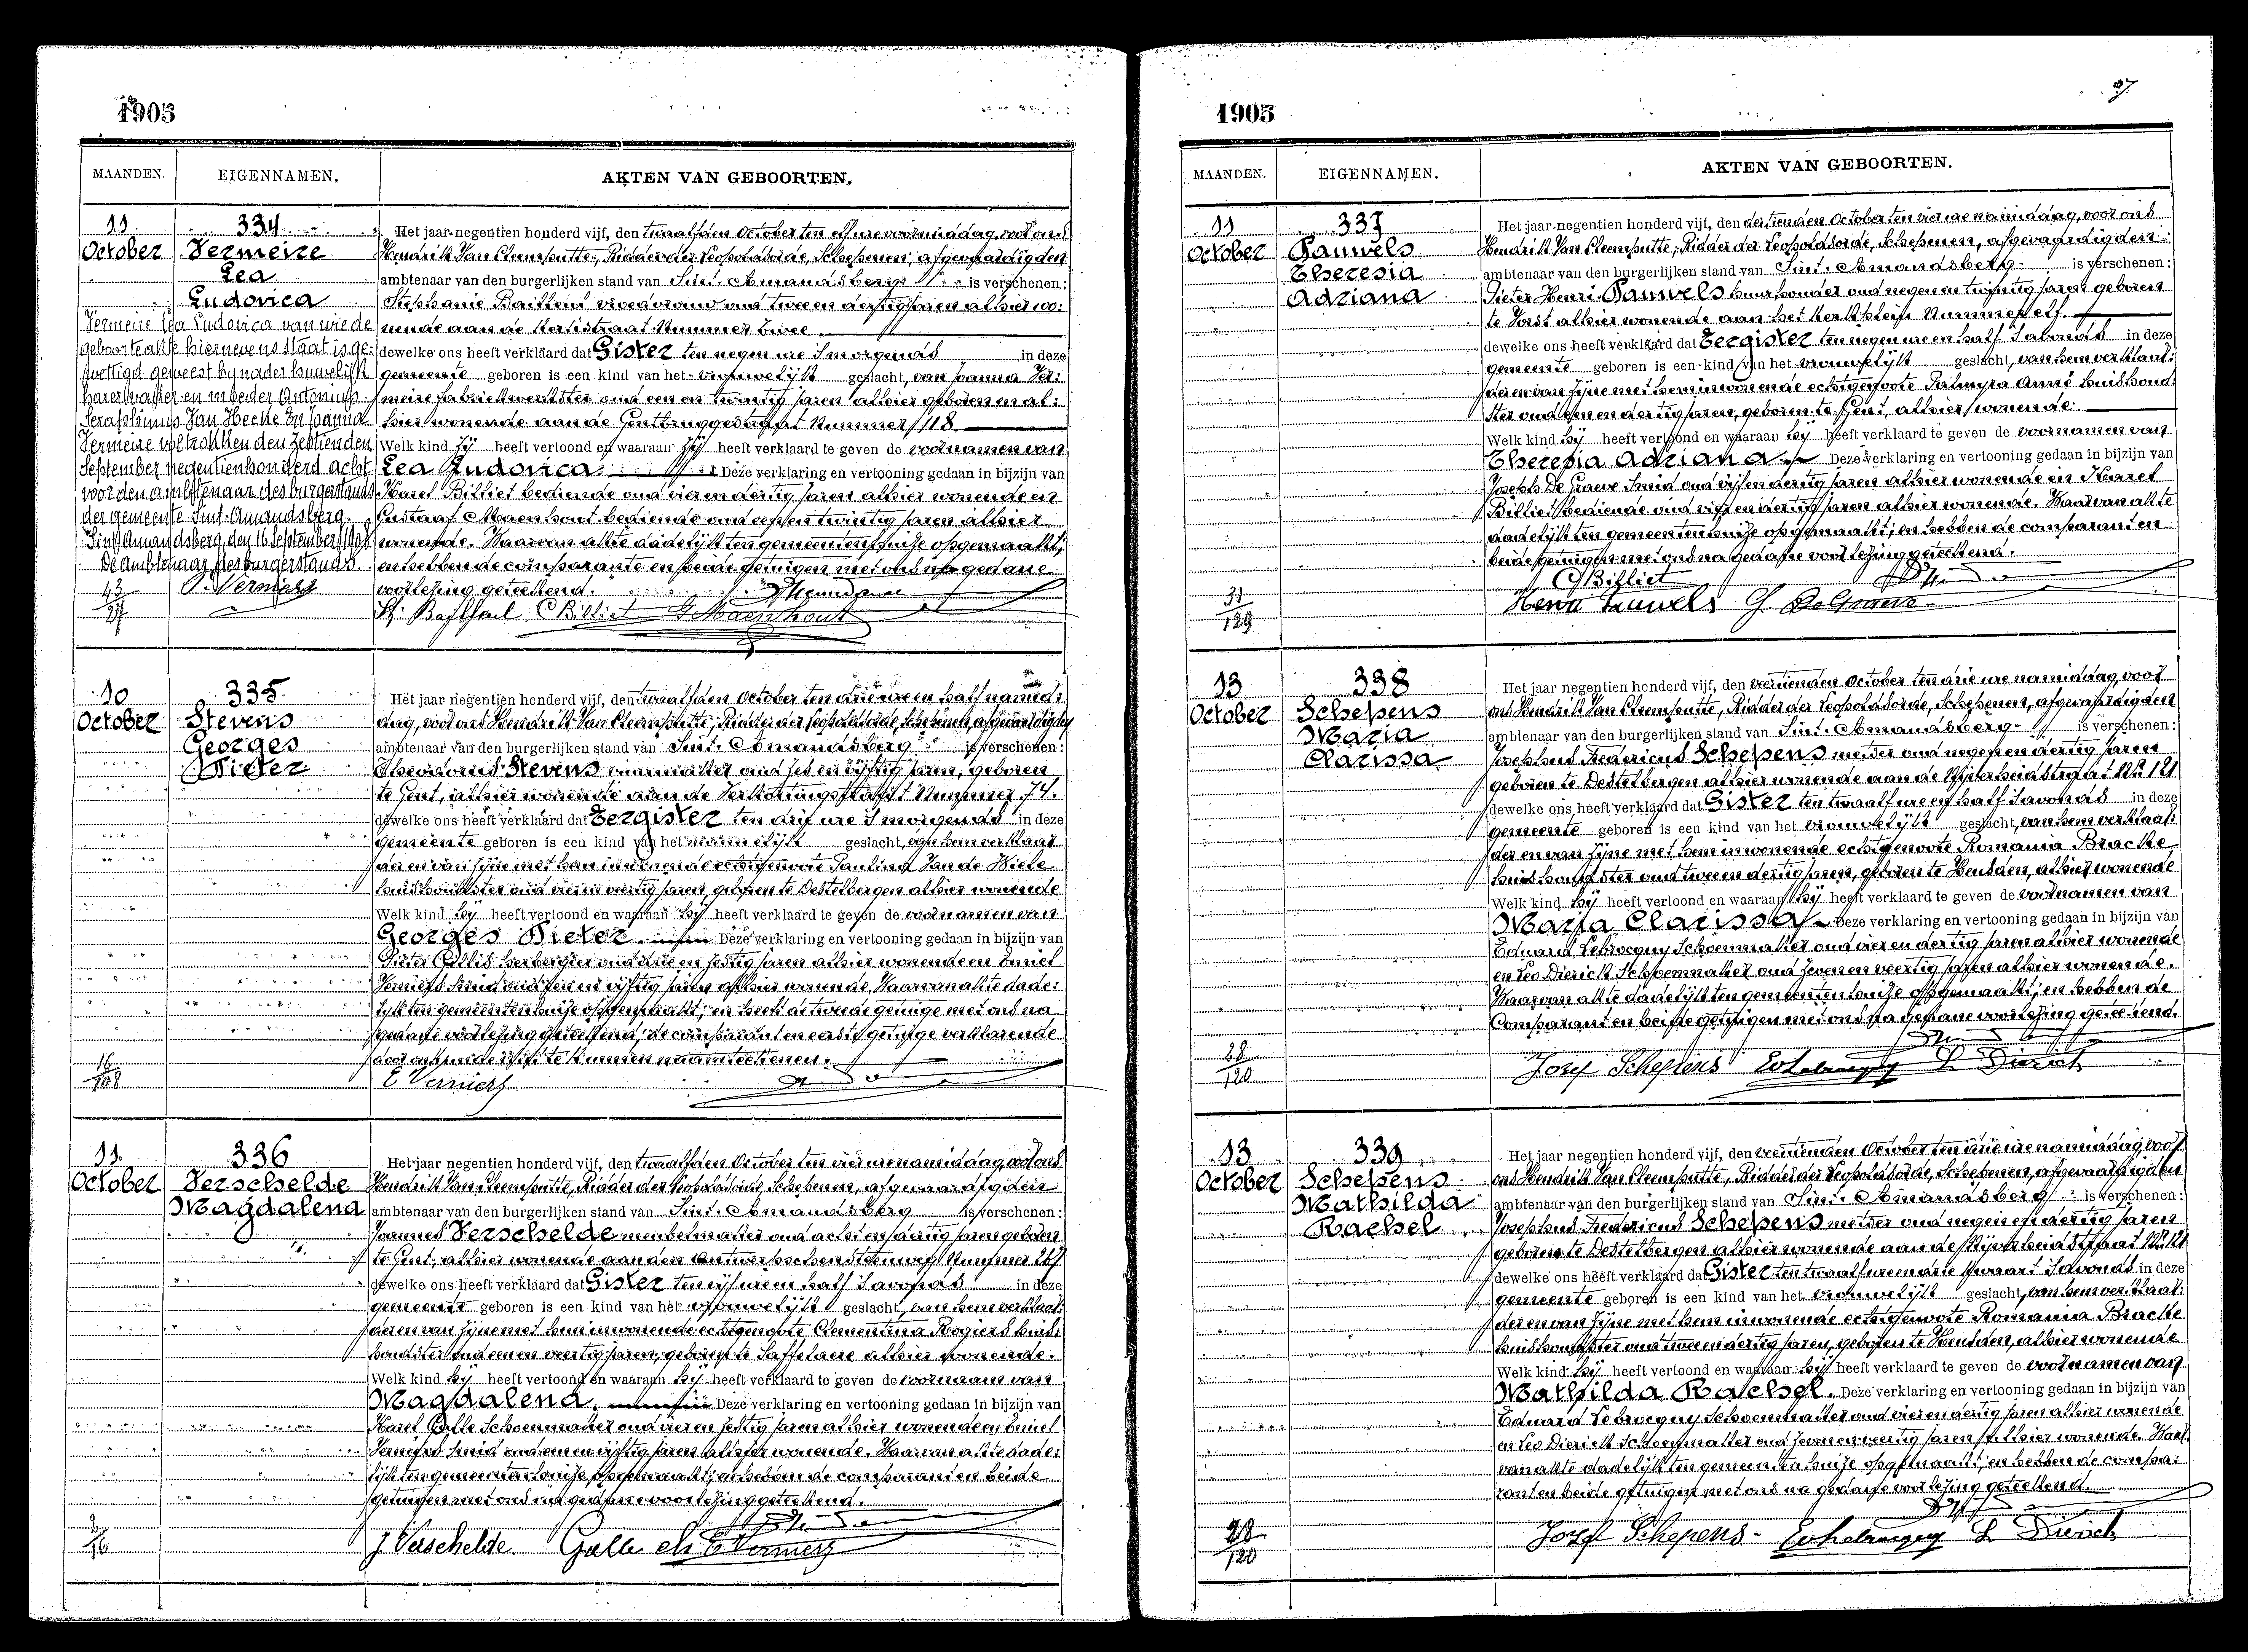 1905
MAANDEN.
EIGENNAMEN.
AKTEN VAN GEBOORTEN.
11
October
334
Vermeire
Lea
Ludovica
Vermeire Lea Ludovica van wie de
geboorteakte hiernevens staat is ge:
wettigd geweest by nader huwelijk
harer vader en moeder Antonius
Seraphinus Van Hecke en Joanna
Vermeire voltrokken den zestienden
September negentienhonderd acht
voor den ambtenaar des burgerstands
der gemeente Sint-Amandsberg.
Sint Amandsberg, den 16 September 1908
De Ambtenaar des burgerstands.
P. Vermers
43
27
Het jaar negentien honderd vijf, den twaalfden October ten elf ure voormiddag, voor ons
Hendrik Van Cleemputte, Ridder der Leopoldsorde, Schepenen, afgevaardigden
ambtenaar van den burgerlijken stand van Sint-Amandsberg is verschenen:
Stephanie Bailleul vroedvrouw oud twee en dertig jaren alhier wo:
nende aan de Kerkstraat Nummer twee.
dewelke ons heeft verklaard dat Gister ten negen ure 's morgends in deze
gemeente geboren is een kind van het vrouwelijk geslacht, van Joanna Ver:
meire fabriekwerkster oud een en twintig jaren alhier geboren en al:
hier wonende aan de Gentbruggestraat Nummer 118
Welk kind zij heeft vertoond en waaraan zij heeft verklaard te geven de voornamen van
Lea Ludovica Deze verklaring en vertooning gedaan in bijzijn van
Karel Billiet bediende oud vier en dertig jaren alhier wonende en
Gustaaf Maenhout bediende oud een en twintig jaren alhier
wonende. Waarvan akte dadelijk ten gemeentenhuize opgemaakt;
en hebben de comparante en beide getuigen met ons na gedane
voorlezing geteekend.
St. Bailleul C Billiet G Maenhout
10
October
335
Stevens
Georges
Pieter
16
108
Het jaar negentien honderd vijf, den twaalfden October ten drie ure en half namid:
dag, voor ons Hendrik Van Cleemputte, Ridder der Leopoldsorde, Schepenen, afgevaardigden
ambtenaar van den burgerlijken stand van Sint-Amandsberg is verschenen:
Theodorus Stevens oud zes en vijftig jaren, geboren
te Gent, alhier wonende aan de Verkortingsstraat Nummer 74.
dewelke ons heeft verklaard dat Eergister ten drie ure 's morgends in deze
gemeente geboren is een kind van het mannelijk geslacht, van hem verklaar
der en van zijne met hem inwonende echtgenoote Paulina Van de Wiele
huishoudster oud vier en veertig jaren, geboren te Destelbergen alhier wonende
Welk kind hij heeft vertoond en waaraan hij heeft verklaard te geven de voornamen van
Georges Pieter Deze verklaring en vertooning gedaan in bijzijn van
Pieter Gillis herbergier oud drie en zestig jaren alhier wonende en Emiel
Verniers smid oud een en vijftig jaren alhier wonende, Waarvan akte dade:
lijk ten gemeentenhuize opgemaakt; en heeft de tweede getuige met ons na
gedane voorlezing geteekend; de comparant en eerste getuige verklarende
te kunnen naamteekenen.
E Verniers
11.
October
336
Verschelde
Magdalena
2
16
Het jaar negentien honderd vijf, den twaalfden October ten vier ure namiddag, voor ons
Hendrik Van Cleemputte, Ridder der Leopoldsorde, Schepenen, afgevaardigden
ambtenaar van den burgerlijken stand van Sint-Amandsberg is verschenen:
Joannes Verschelde meubelmaker oud acht en dertig jaren geboren
te Gent, alhier wonende aan den Antwerpschensteenweg Nummer 267
dewelke ons heeft verklaard dat Gister ten vijf ure en half 's avonds in deze
gemeente geboren is een kind van het vrouwelijk geslacht, van hem verklaar:
der en van zijne met hem inwonende echtgenoote Clementina Rogiers huis:
houdster oud een en veertig jaren, geboren te Saffelaere alhier wonende.
Welk kind hij heeft vertoond en waaraan hij heeft verklaard te geven de voornaam van
Magdalena. Deze verklaring en vertooning gedaan in bijzijn van
Karel Galle Schoenmaker oud vier en zestig jaren alhier wonende en Emiel
Verniers smid oud een en vijftig jaren alhier wonende. Waarvan akte dade:
lijk ten gemeentenhuize opgemaakt; en hebben de comparant en beide
getuigen met ons na gedane voorlezing geteekend.
J. Verschelde Galle ch E Verniers
37
1905
MAANDEN.
EIGENNAMEN.
AKTEN VAN GEBOORTEN.
11
October
337
Pauwels
Theresia
Adriana
31
129
Het jaar negentien honderd vijf, den dertienden October ten vier ure namiddag, voor ons
Hendrik Van Cleemputte, Ridder der Leopoldsorde, Schepenen, afgevaardigden
ambtenaar van den burgerlijken stand van Sint-Amandsberg is verschenen:
Pieter Henri Pauwels huurhouder oud negen en twintig jaren geboren
te Vorst alhier wonende aan het Kerkplein Nummer elf.
dewelke ons heeft verklaard dat Eergister ten negen ure en half 's avonds in deze
gemeente geboren is een kind van het vrouwelijk geslacht, van hem verklaar:
der en van zijne met hem inwonende echtgenoote Palmyra Anné huishoud:
ster oud een en dertig jaren, geboren te Gent, alhier wonende
Welk kind hij heeft vertoond en waaraan hij heeft verklaard te geven de voornamen van
Theresia Adriana Deze verklaring en vertooning gedaan in bijzijn van
Joseph De Graeve Smid oud vijf en dertig jaren alhier wonende en Karel
Billiet bediende oud vier en dertig jaren alhier wonende. Waarvan akte
dadelijk ten gemeentenhuize opgemaakt; en hebben de comparant en
beide getuigen met ons na gedane voorlezing geteekend.
C Billiet
Henri Pauwels J. De Graeve
13
October
338
Schepens
Maria
Clarissa
28
120
Het jaar negentien honderd vijf, den veertienden October ten drie ure namiddag, voor
ons Hendrik Van Cleemputte, Ridder der Leopoldsorde, Schepenen, afgevaardigden
ambtenaar van den burgerlijken stand van Sint-Amandsberg is verschenen:
Josephus Fredericus Schepens metser oud negen en dertig jaren
geboren te Destelbergen alhier wonende aan de Nijverheidstraat No 121
dewelke ons heeft verklaard dat Gister ten twaalf ure en half 's avonds in deze
gemeente geboren is een kind van het vrouwelijk geslacht, van hem verklaar:
der en van zijne met hem inwonende echtgenoote Romania Bracke
huishoudster oud twee en dertig jaren, geboren te Heusden, alhier wonende
Welk kind hij heeft vertoond en waaraan hij heeft verklaard te geven de voornamen van
Maria Clarissa Deze verklaring en vertooning gedaan in bijzijn van
Eduard Lebrocquy Schoenmaker oud vier en dertig jaren alhier wonende
en Leo Dierick Schoenmaker oud zeven en veertig jaren alhier wonende.
Waarvan akte dadelijk ten gemeentenhuize opgemaakt; en hebben de
Comparant en beide getuigen met ons na gedane voorlezing geteekend.
Jozef Schepens Ed Lebrocquy L Dierick
13
October
339
Schepens
Mathilda
Rachel
28
120
Het jaar negentien honderd vijf, den veertienden October ten drie ure namiddag, voor
ons Hendrik Van Cleemputte, Ridder der Leopoldsorde, Schepenen, afgevaardigden
ambtenaar van den burgerlijken stand van Sint-Amandsberg is verschenen:
Josephus Fredericus Schepens metser oud negen en dertig jaren
geboren te Destelbergen alhier wonende aan de Nijverheidstraat No 121
dewelke ons heeft verklaard dat Gister ten twaalf ure en drie kwaart 's avonds in deze
gemeente geboren is een kind van het vrouwelijk geslacht, van hem verklaar:
der en van zijne met hem inwonende echtgenoote Romania Bracke
huishoudster oud twee en dertig jaren, geboren te Heusden, alhier wonende
Welk kind hij heeft vertoond en waaraan hij heeft verklaard te geven de voornamen van
Mathilda Rachel. Deze verklaring en vertooning gedaan in bijzijn van
Eduard Lebrocquy Schoenmaker oud vier en dertig jaren alhier wonende
en Leo Dierick Schoenmaker oud zeven en veertig jaren alhier wonende. Waar:
van akte dadelijk ten gemeentenhuize opgemaakt; en hebben de compa:
rant en beide getuigen met ons na gedane voorlezing geteekend.
Jozef Schepens Ed Lebrocquy L Dierick